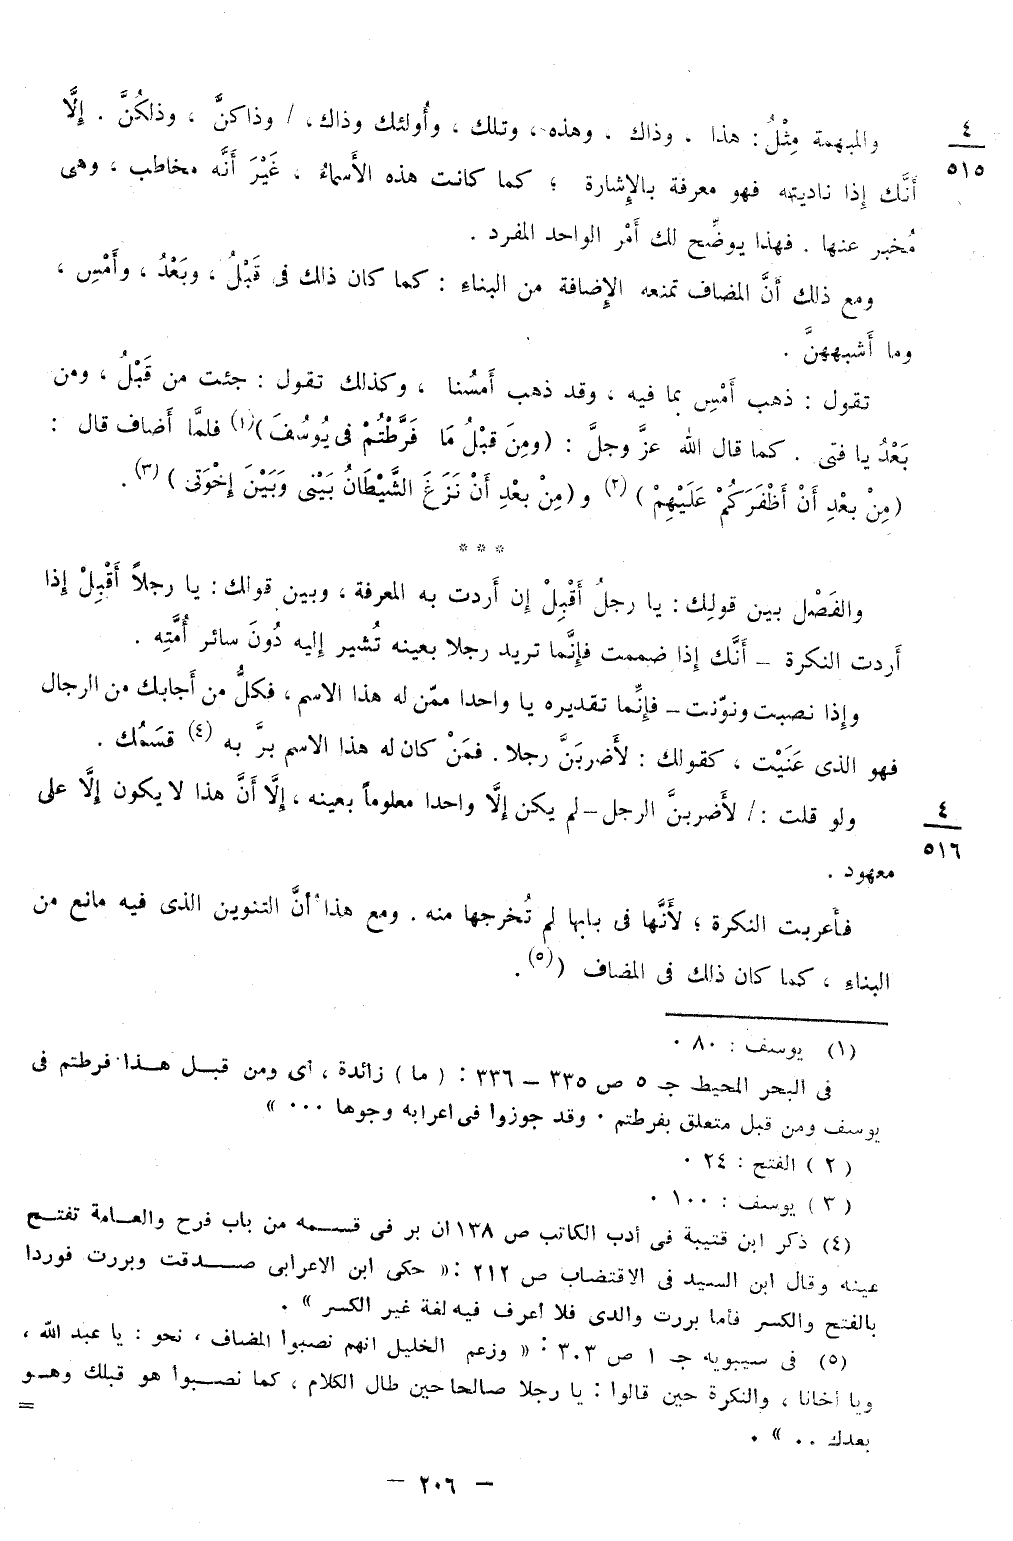 والمبهمة مِثْلُ : هذا ، وذاك ، وهذه ، وتلك ، وأُولئك وذاك ، / وذاكنَّ ، وذلكُنَّ . إِلَّا
٤
٥١٥
أَنَّك إِذا ناديته فهو معرفة بالإِشارة ؛ كما كانت هذه الأَسماءُ ، غَيْرَ أَنَّه مخاطب ، وهى
مُخبر عنها . فهذا يوضِّح لك أَمْر الواحد المفرد .
ومع ذلك أَنَّ المضاف تمنعه الإِضافة من البناءِ : كما كان ذلك فى قَبْلُ ، وبَعْدُ ، وأَمْسِ ،
وما أَشبههنَّ .
تقول : ذهب أَمْسِ بما فيه ، وقد ذهب أَمسُنا ، وكذلك تقول : جئت من قَبْلُ ، ومن
بَعْدُ يا فتى . كما قال الله عزَّ وجلَّ : (ومِنَ قبْلُ مَا فَرَّطْتُمْ فى يُوسُفَ)(١) فلمَّا أَضاف قال :
(مِنْ بعْدِ أَنْ أَظْفَرَكُمْ عَلَيْهِمْ ) (٢) و (مِنْ بعْدِ أَنْ نَزَغَ الشَّيْطَانُ بَيْنى وَبَيْنَ إِخْوَتى ) (٣).
* * *
والفَصْل بين قولِك : يا رجلُ أَقْبِلْ إِن أَردت به المعرفة ، وبين قولك : يا رجلاً أَقْبِلْ إِذا
أَردت النكرة – أَنَّك إِذا ضممت فإِنَّما تريد رجلا بعينه تُشير إِليه دُونَ سائر أُمَّتِه .
وإِذا نصبت ونوّنت – فإِنَّما تقديره يا واحدا ممّن له هذا الاسم ، فكلُّ من أَجابك من الرجال
فهو الذى عَنَيْت ، كقولك : لأَضربَنَّ رجلا . فمَنْ كان له هذا الاسم برَّ به (٤) قسَمُك .
ولو قلت : / لأَضربنَّ الرجل – لم يكن إِلَّا واحدا معلوماً بعينه ، إِلَّا أَنَّ هذا لا يكون إِلَّا على
٤
٥١٦
معهود .
فأُعربت النكرة ؛ لأَنَّها فى بابها لم تُخرجها منه . ومع هذا أَنَّ التنوين الذى فيه مانع من
البناءِ ، كما كان ذلك فى المضاف (٥) .
(١) يوسف : ٨٠ ٠
فى البحر المحيط جـ ٥ ص ٣٣٥ – ٣٣٦ : ( ما ) زائدة ، أى ومن قبل هذا فرطتم فى
يوسف ومن قبل متعلق بفرطتم ٠ وقد جوزوا فى اعرابه وجوها ٠٠٠ »
( ٢ ) الفتح : ٢٤ ٠
( ٣ ) يوسف : ١٠٠ ٠
(٤) ذكر ابن قتيبة فى أدب الكاتب ص ١٣٨ ان بر فى قسمه من باب فرح والعامة تفتح
عينه وقال ابن السيد فى الاقتضاب ص ٢١٢ : « حكى ابن الاعرابى صدقت وبررت فوردا
بالفتح والكسر فأما بررت والدى فلا أعرف فيه لغة غير الكسر » ٠
(٥) فى سيبويه جـ ١ ص ٣٠٣ : « وزعم الخليل انهم نصبوا المضاف ، نحو : يا عبد الله ،
ويا أخانا ، والنكرة حين قالوا : يا رجلا صالحا حين طال الكلام ، كما نصبوا هو قبلك وهو
بعدك ٠٠ » ٠
=
– ٢٠٦ –